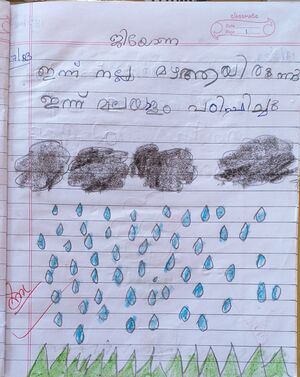 classmate
Date
Page 1
ജിയോന
ഇന്ന് നല്ല
ഇന്ന് മലയാളം പഠിപ്പിച്ചു